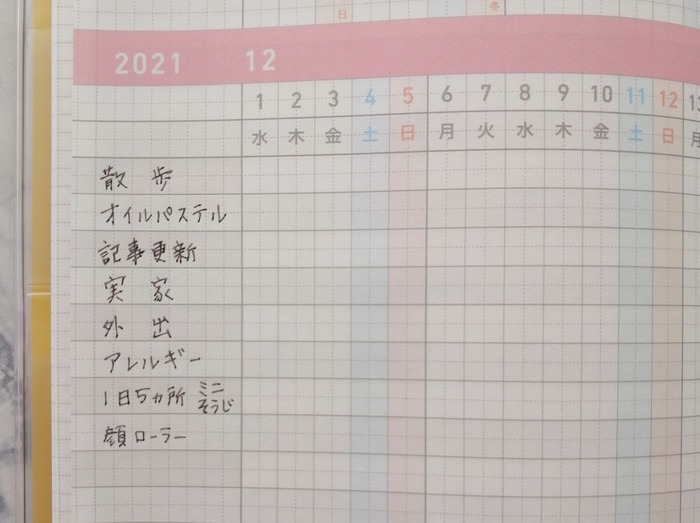 日 冬
2021 12
1 2 3 4 5 6 7 8 9 10 11 12 13
水 木 金 土 日 月 火 水 木 金 土 日 月
散 歩
オイルパステル
記事更新
実 家
外 出
アレルギー
1日5ヵ所 ミニ
そうじ
顔ローラー